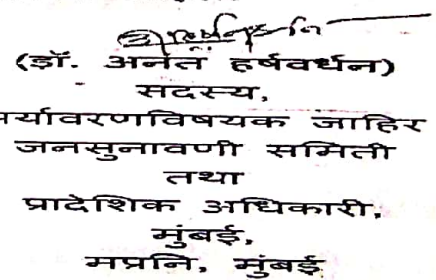 (डॉ. अनंत हर्षवर्धन)
सदस्य,
र्यावरणविषयक जाहिर
जनसुनावणी समिती
तथा
प्रादेशिक अधिकारी,
मुंबई,
मप्रनि, मुंबई